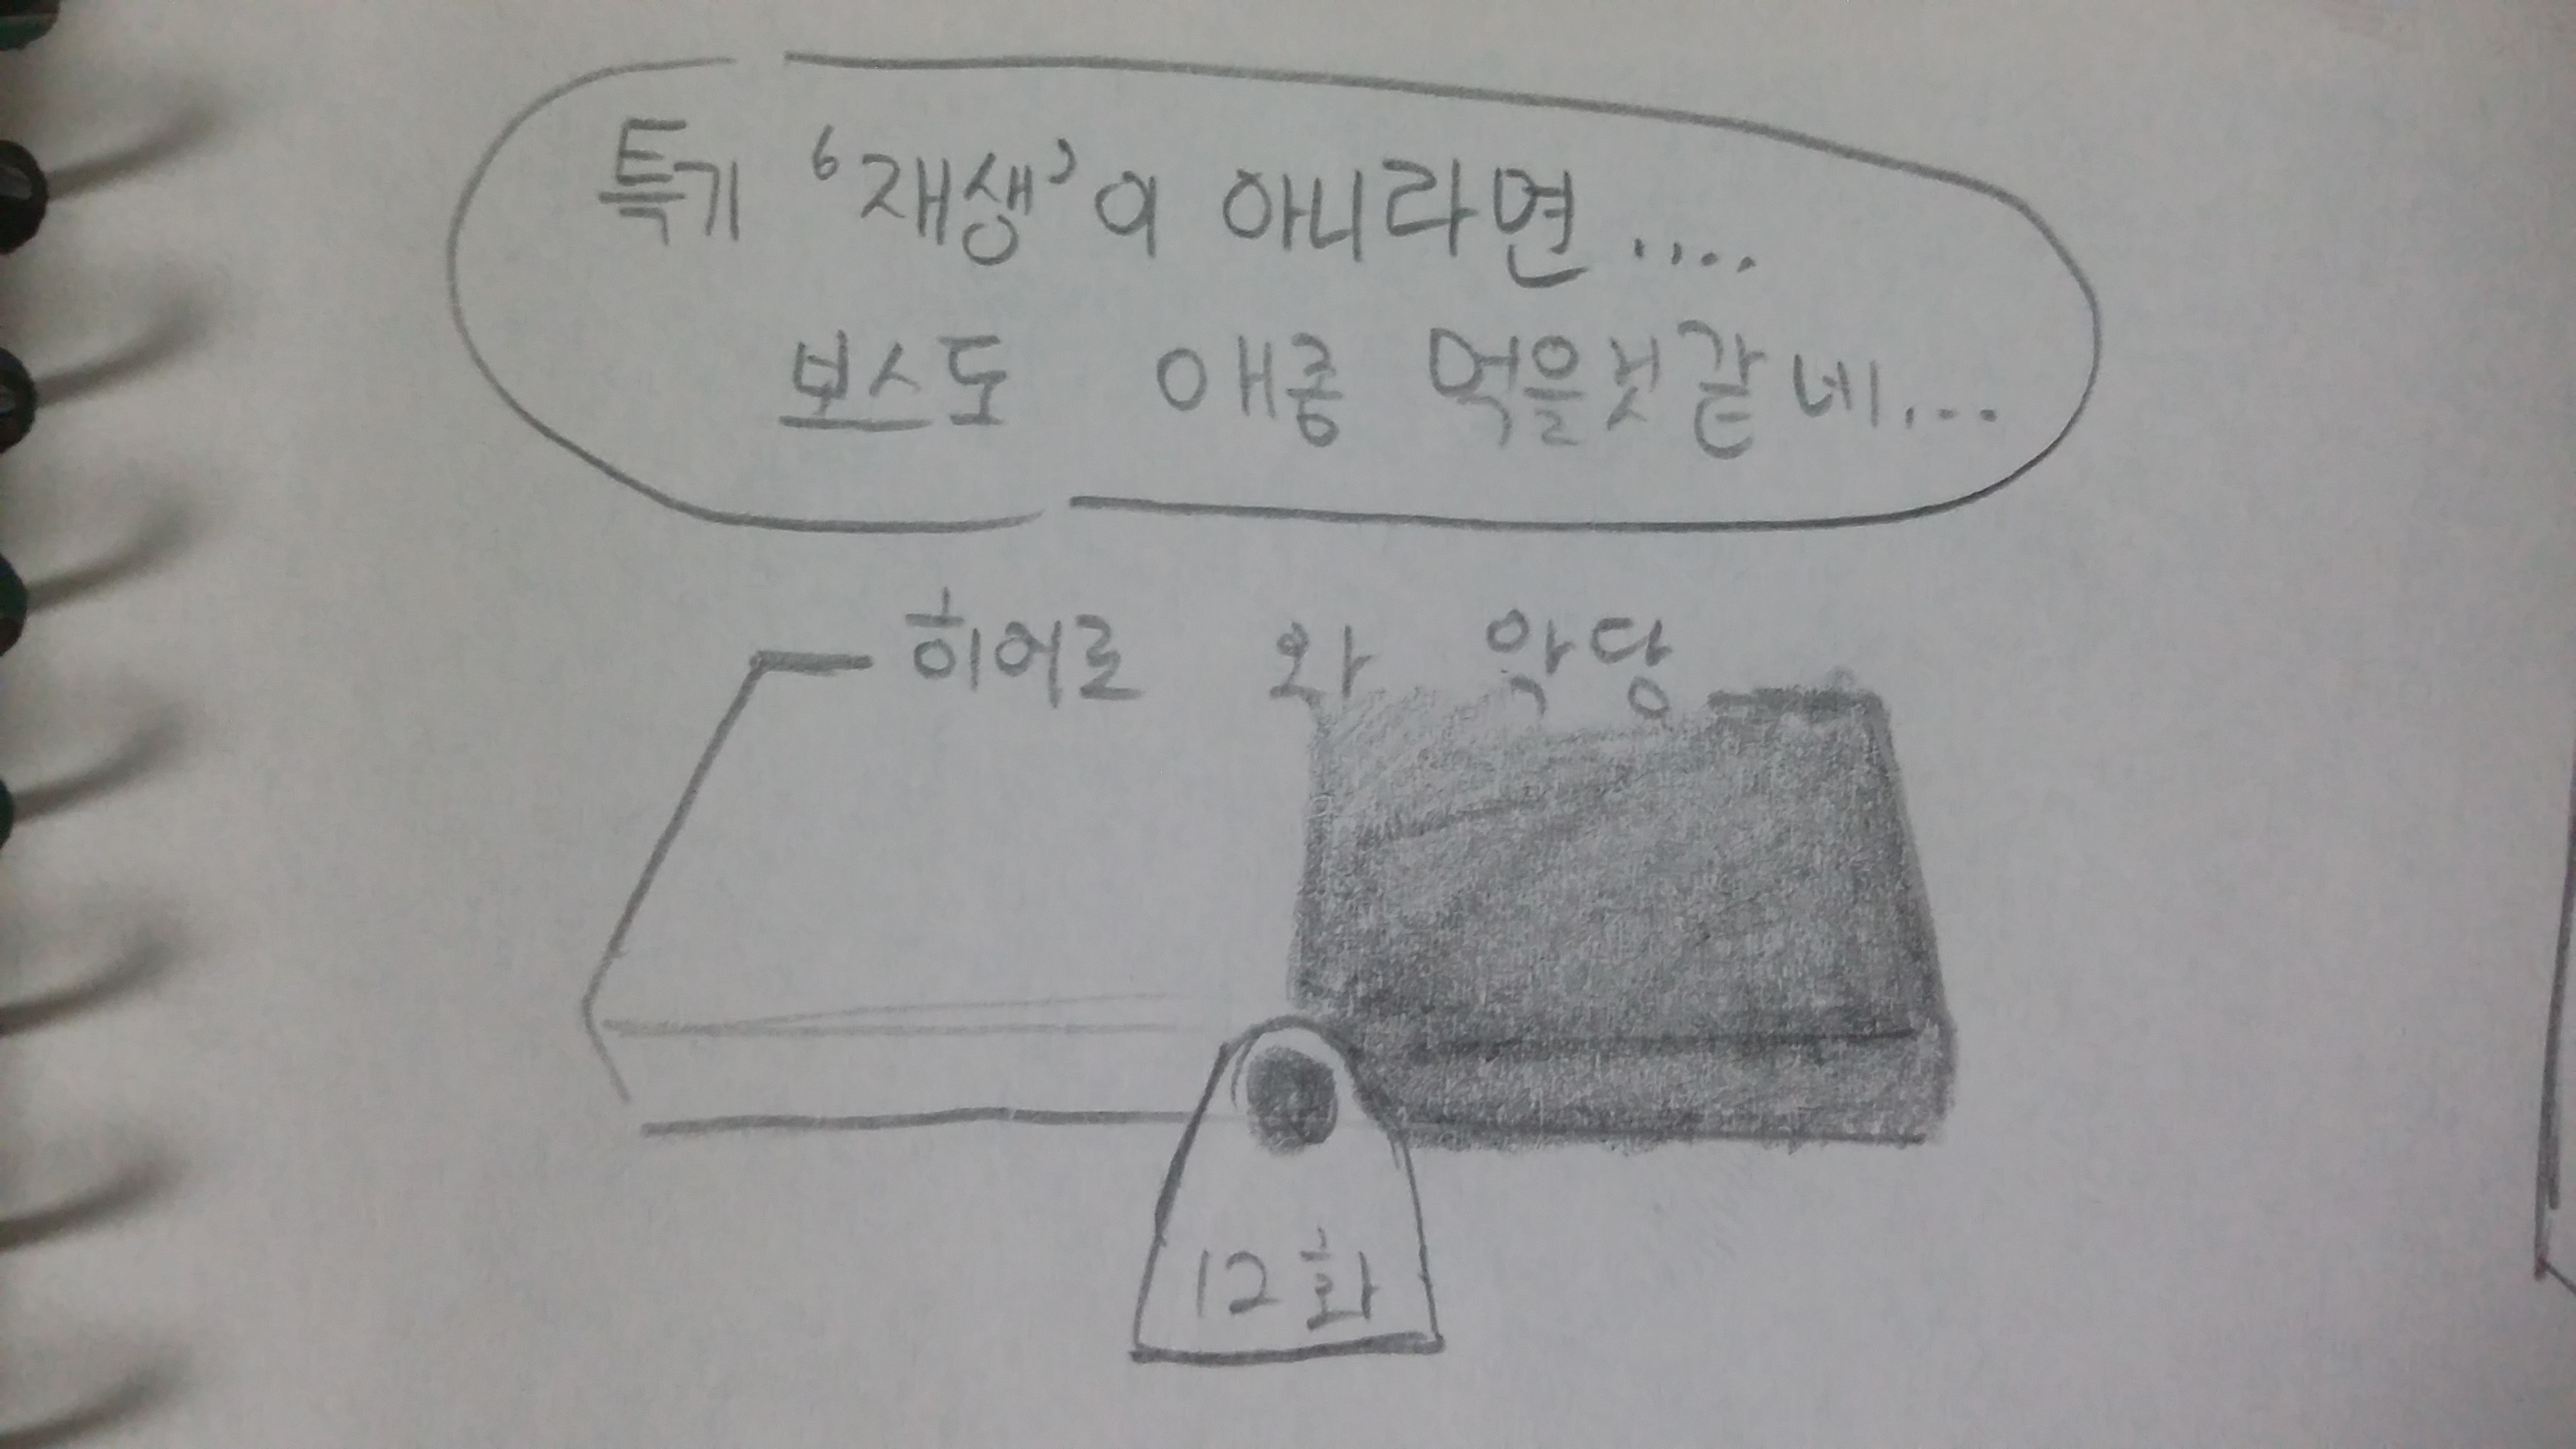 특기 '재생'이 아니라면....
보스도 애좀 먹을것같네...
히어로 와 악당
12화